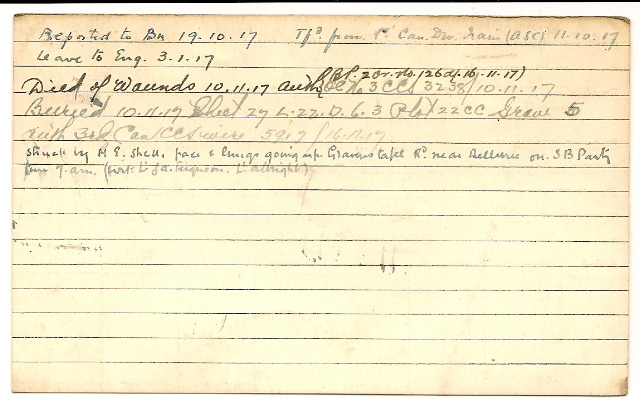 Reported to Bn 19.10.17 Tfd. from 1st Can. Div. Train (ASC) 11.10.17
Leave to Eng. 3.1.17
(Pt. 2 Or. No. 126 d/. 16.11.17)
Died of Wounds 10.11.17 Auth OC No 3 CCS 3238/10.11.17
Buried 10.11.17 Sheet 27 L.22.D.6.3 Plot 22 CC Grave 5
Auth 3rd Can CCS wire 5917/16.11.17
Struck by H.E. Shell, face & lungs going up Gravenstafel Rd. near Bellevue on S B Party
7. am. Ferguson. L. Albright)